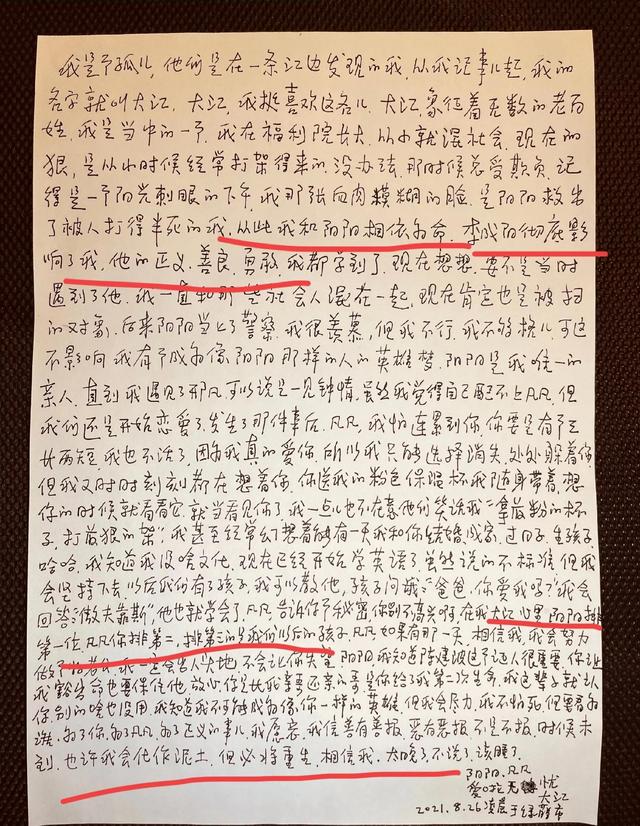 我是个孤儿，他们是在一条江边发现的我，从我记事儿起，我的
名字就叫大江，大江，我挺喜欢这名儿，大江象征着无数的老百
姓，我是当中的一个，我在福利院长大，从小就混社会，现在的
狠，是从小时候经常打架得来的，没办法，那时候总受欺负，记
得是一个阳光刺眼的下午，我那张血肉模糊的脸，是阳阳救出
了被人打得半死的我，从此我和阳阳相依为命，李成阳彻底影
响了我，他的正义，善良，勇敢，我都学到了，现在想想，要不是当时
遇到了他，我一直和那些社会人混在一起，现在肯定也是被扫
的对象，后来阳阳当上了警察，我很羡慕，但我不行，我不够格儿，可这
不影响我有个成为像阳阳那样的人的英雄梦，阳阳是我唯一的
亲人，直到我遇见了那凡，可以说是一见钟情，虽然我觉得自己配不上凡凡，但
我们还是开始恋爱了，发生了那件事后，凡凡，我怕连累到你，你要是有个三
长两短，我也不活了，因为我真的爱你，所以我只能选择消失，处处躲着你
但我又时时刻刻都在想着你，你送我的粉色保温杯我随身带着，想
你的时候就看看它，就当看见你了，我一点儿也不在意他们笑话我"拿最粉的杯
子，打最狠的架"，我甚至经常幻想着能有一天我和你结婚，成家，过日子，生孩子
哈哈，我知道我没啥文化，现在已经开始学英语了，虽然说的不标准，但我
会坚持下去，以后我们有了孩子，我可以教他，孩子问我："爸爸，你爱我吗？"我会
回答："做夫靠斯"他也就学会了，凡凡，告诉你个秘密，你别不高兴啊，在我大江心里，阳阳排
第一位，凡凡你排第二，排第三的是我们以后的孩子，凡凡，如果有那一天，相信我，我会努力
做个好老公，我一定会出人头地，不会让你失望，阳阳，我知道陈建波这个证人很重要，你让
我豁出命也要保住他，放心，你是比我亲哥还亲的哥，是你给了我第二次生命，我这辈子就认
你，别的啥也没用，我知道我不可能成为像你一样的英雄，但我会尽力，我不怕死，但要看为
谁，为了你，为了凡凡，为了正义的事儿，我愿意，我信善有善报，恶有恶报，不是不报，时候未
到，也许我会化作泥土，但必将重生，相信我，太晚了，不说了，该睡了
阳阳，凡凡
爱啦无忧
大江
2021.8.26凌晨于绿藤市